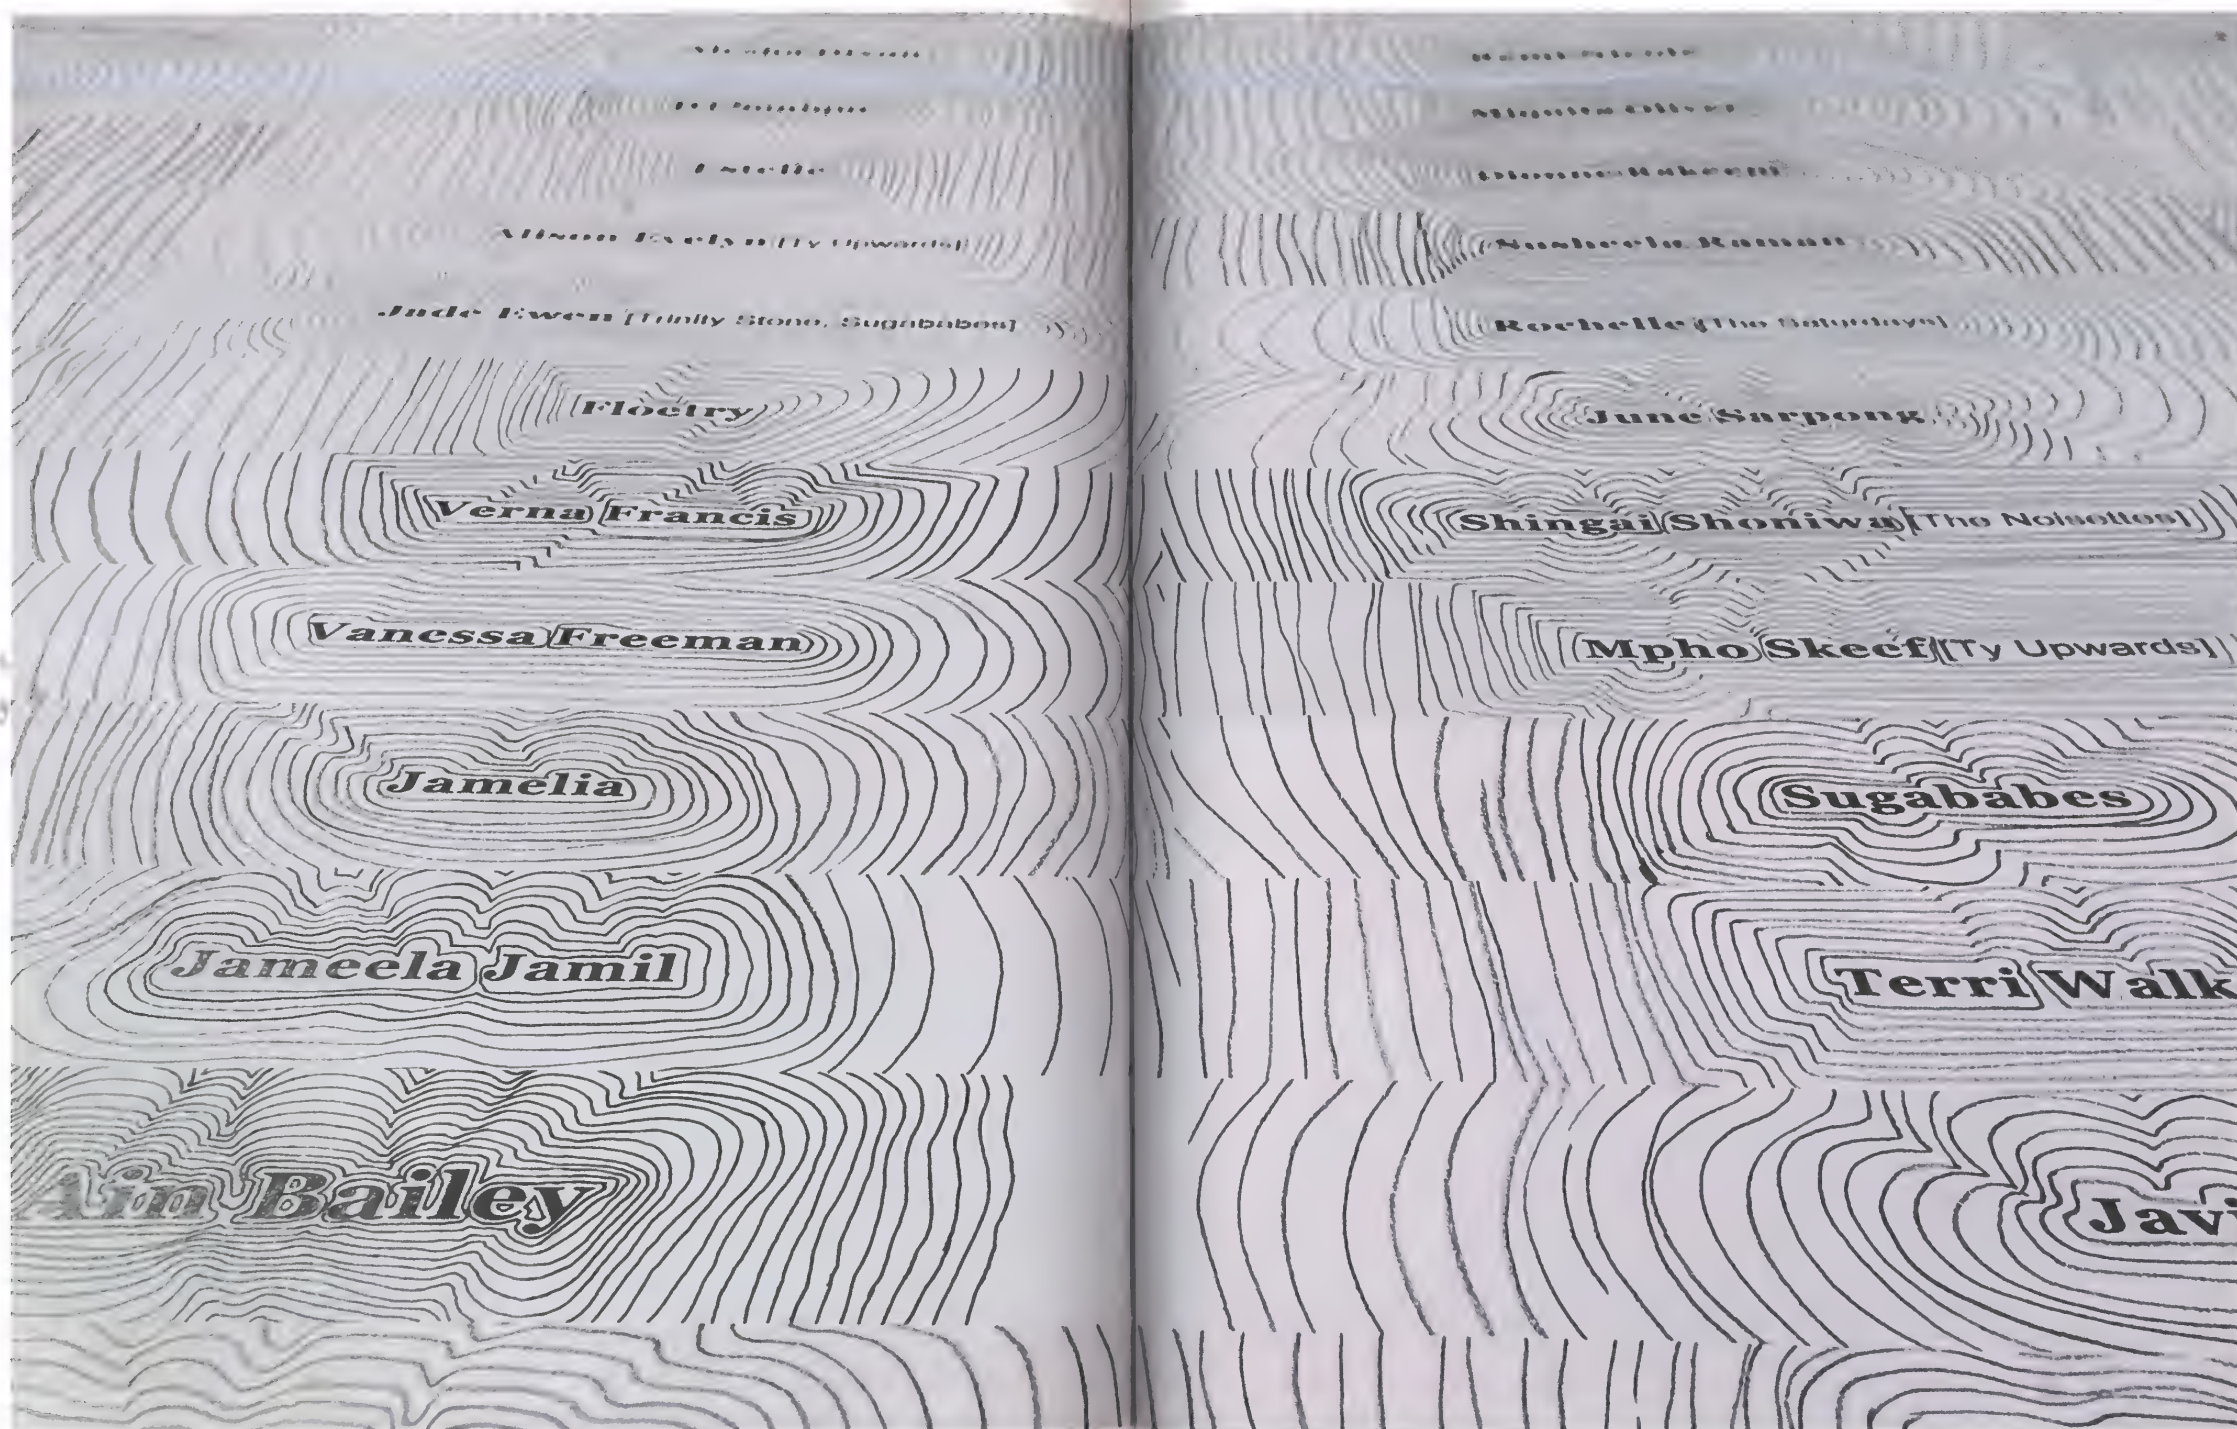 Estelle
Alison Evelyn [Ty Upwards]
Jade Ewen [Trinity Stone, Sugababes]
Floetry
Verna Francis
Vanessa Freeman
Jamelia
Jameela Jamil
Ain Bailey
Miquita Oliver
Dionne Rakeem
Susheela Raman
Rochelle [The Saturdays]
June Sarpong
Shingai Shoniwa [The Noisettes]
Mpho Skeef [Ty Upwards]
Sugababes
Terri Walk
Javi